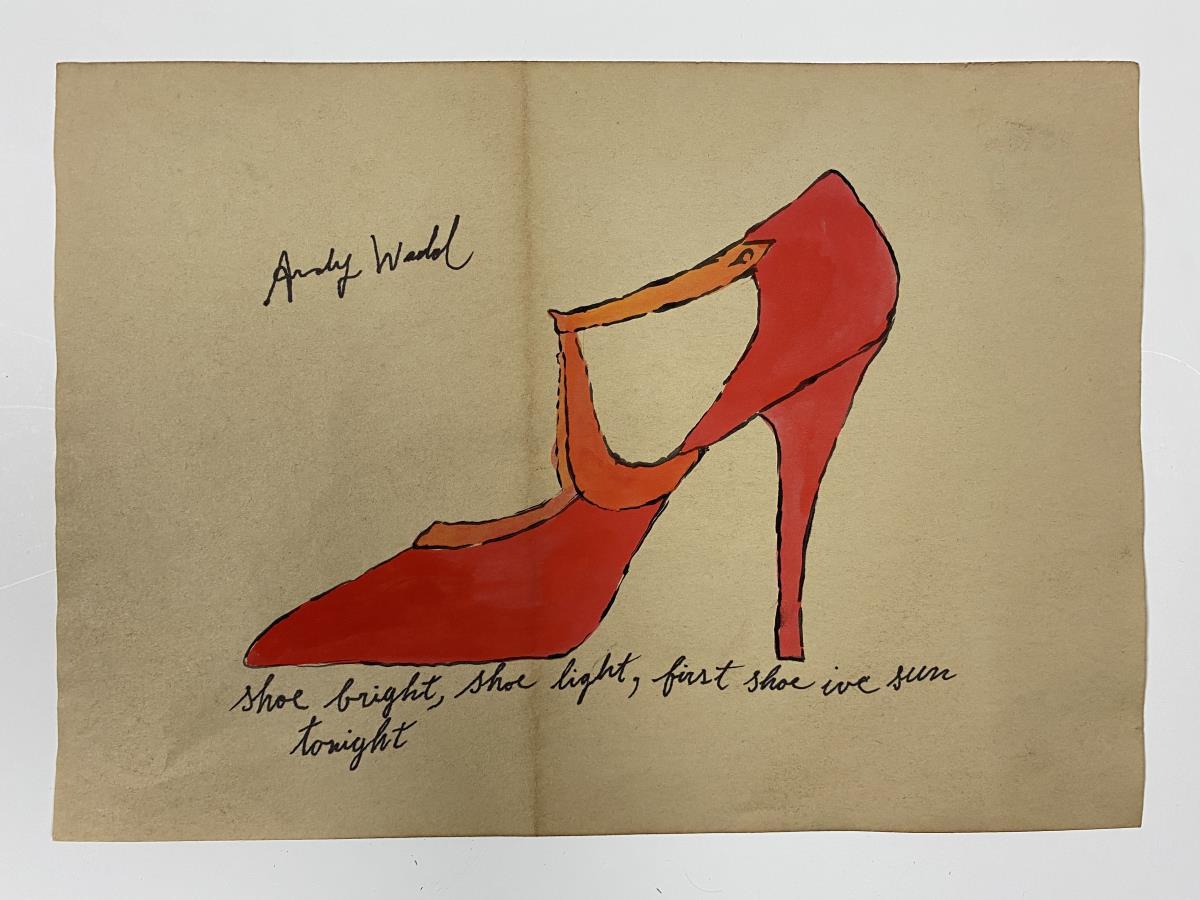 Andy Wadol
shoe bright, shoe light, first shoe ive sun
tonight